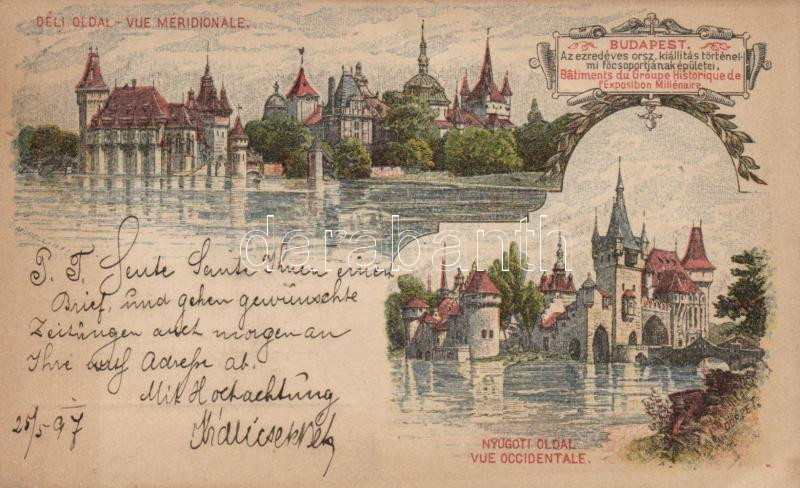 DÉLI OLDAL – VUE MÉRIDIONALE.
BUDAPEST.
Az ezredéves orsz. kiállitás történel-
mi főcsoportjának épületei.
Bâtiments du Groupe Historique de
l'Exposition Millénaire
darabanth
P. T. Heute Sante Ihnen einen
Brief, und gehen gewünschte
Zeitungen auch morgen an
Ihre Adresse ab.
Mit Hochachtung
25/5 97
NYUGOTI OLDAL
VUE OCCIDENTALE.